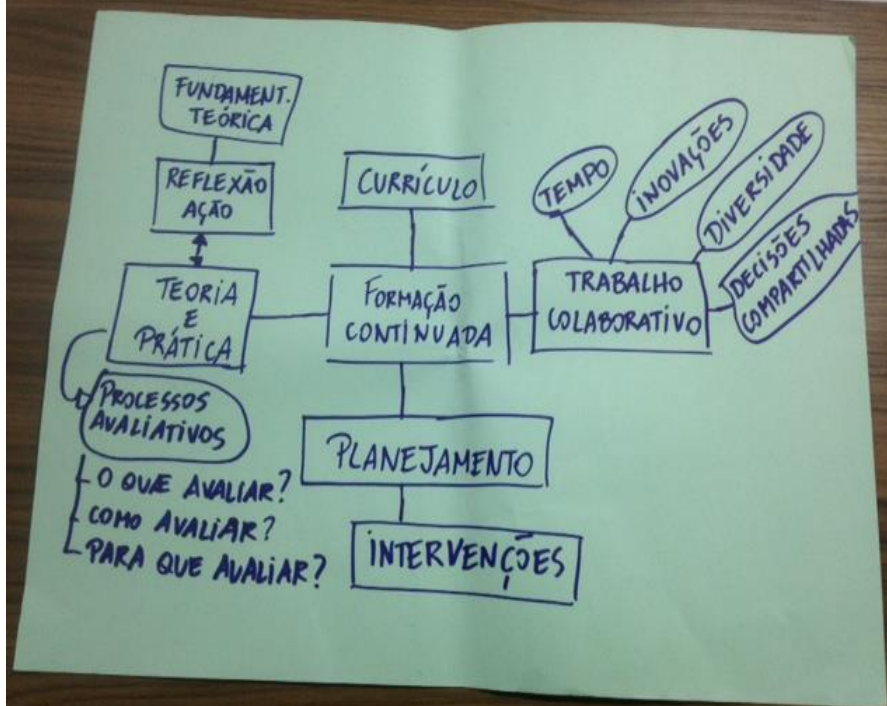 FUNDAMENT.
TEÓRICA
REFLEXÃO
AÇÃO
TEORIA
E
PRÁTICA
PROCESSOS
AVALIATIVOS
O QUE AVALIAR?
COMO AVALIAR?
PARA QUE AVALIAR?
CURRÍCULO
FORMAÇÃO
CONTINUADA
PLANEJAMENTO
INTERVENÇÕES
TEMPO
INOVAÇÕES
DIVERSIDADE
DECISÕES
COMPARTILHADAS
TRABALHO
COLABORATIVO